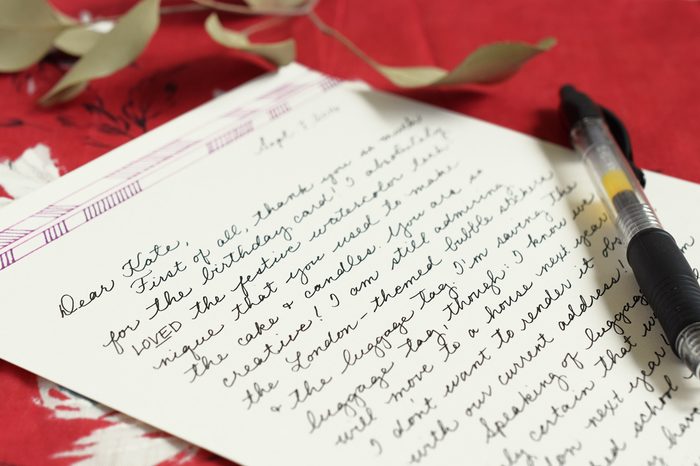 Dear Kate,
First of all, thank you so much
for the birthday card! I absolutely
LOVED the festive watercolor tech
nique that you used to make
the cake & candles. You are so
creative! I am still admiring
the London-themed bubble stickers
& the luggage tag. I'm saving the
luggage tag, though: I know we
will move to a house next year
I don't want to render it obs
with our current address!
Speaking of luggage
certain that w
next year!
school